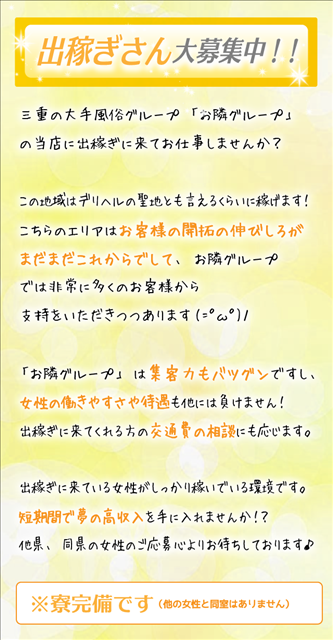 出稼ぎさん大募集中！！
三重の大手風俗グループ「お隣グループ」
の当店に出稼ぎに来てお仕事しませんか？
この地域はデリヘルの聖地とも言えるくらいに稼げます！
こちらのエリアはお客様の開拓の伸びしろが
まだまだこれからでして、お隣グループ
では非常に多くのお客様から
支持をいただきつつあります(=ﾟωﾟ)ﾉ
「お隣グループ」は集客力もバツグンですし、
女性の働きやすさや待遇も他には負けません！
出稼ぎに来てくれる方の交通費の相談にも応じます。
出稼ぎに来ている女性がしっかり稼いでいる環境です。
短期間で夢の高収入を手に入れませんか！？
他県、同県の女性のご応募心よりお待ちしております♪
※寮完備です（他の女性と同室はありません）